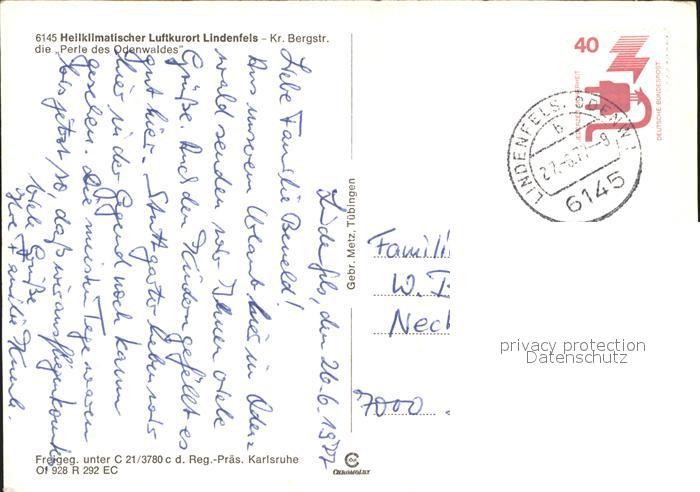 6145 Heilklimatischer Luftkurort Lindenfels – Kr. Bergstr.
die „Perle des Odenwaldes"
Lindenfels, den 26.6.1977
Liebe Familie
Aus unserem Urlaub hier im Oden-
wald senden wir Ihnen viele
Grüße. Auch den Kindern gefällt es
gut hier. Stuttgarter haben wir
hier in der Gegend noch kaum
gesehen. Die meisten Tage waren
bis jetzt so, daß wir ausfliegen konnten
Viele Grüße
Ihre Familie
Freigeg. unter C 21/3780 c d. Reg.-Präs. Karlsruhe
Of 928 R 292 EC
Gebr. Metz, Tübingen
CHROMOLUX
40
JEDERZEIT SICHERHEIT
DEUTSCHE BUNDESPOST
LINDENFELS, ODENW
b
27.-6.77.-9
6145
Famili
W.
Neck
7000
privacy protection
Datenschutz